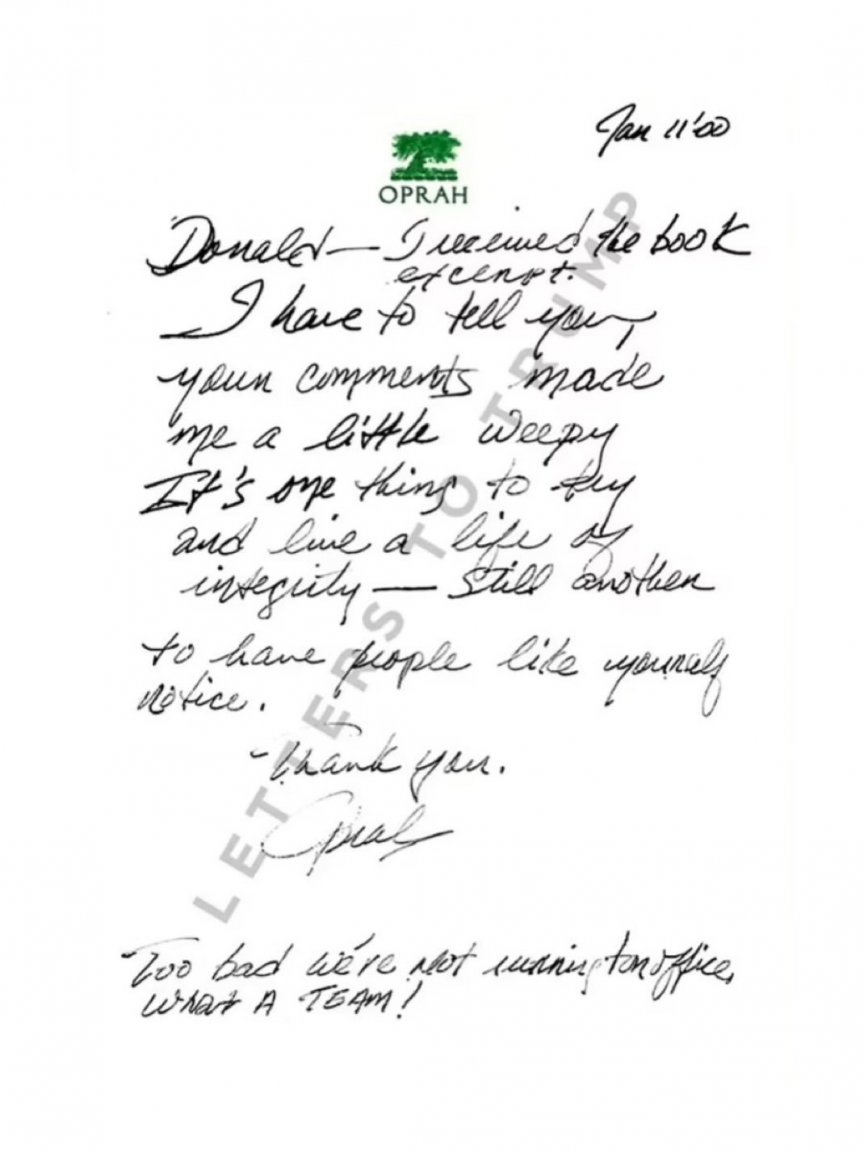 Jan 11'00
OPRAH
Donald— I received the book
excerpt.
I have to tell you,
your comments made
me a little weepy
It's one thing to try
and live a life of
integrity — still another
to have people like yourself
notice.
Thank you.
Oprah
Too bad we're not running for office,
WHAT A TEAM!
LETTERS TO TRUMP